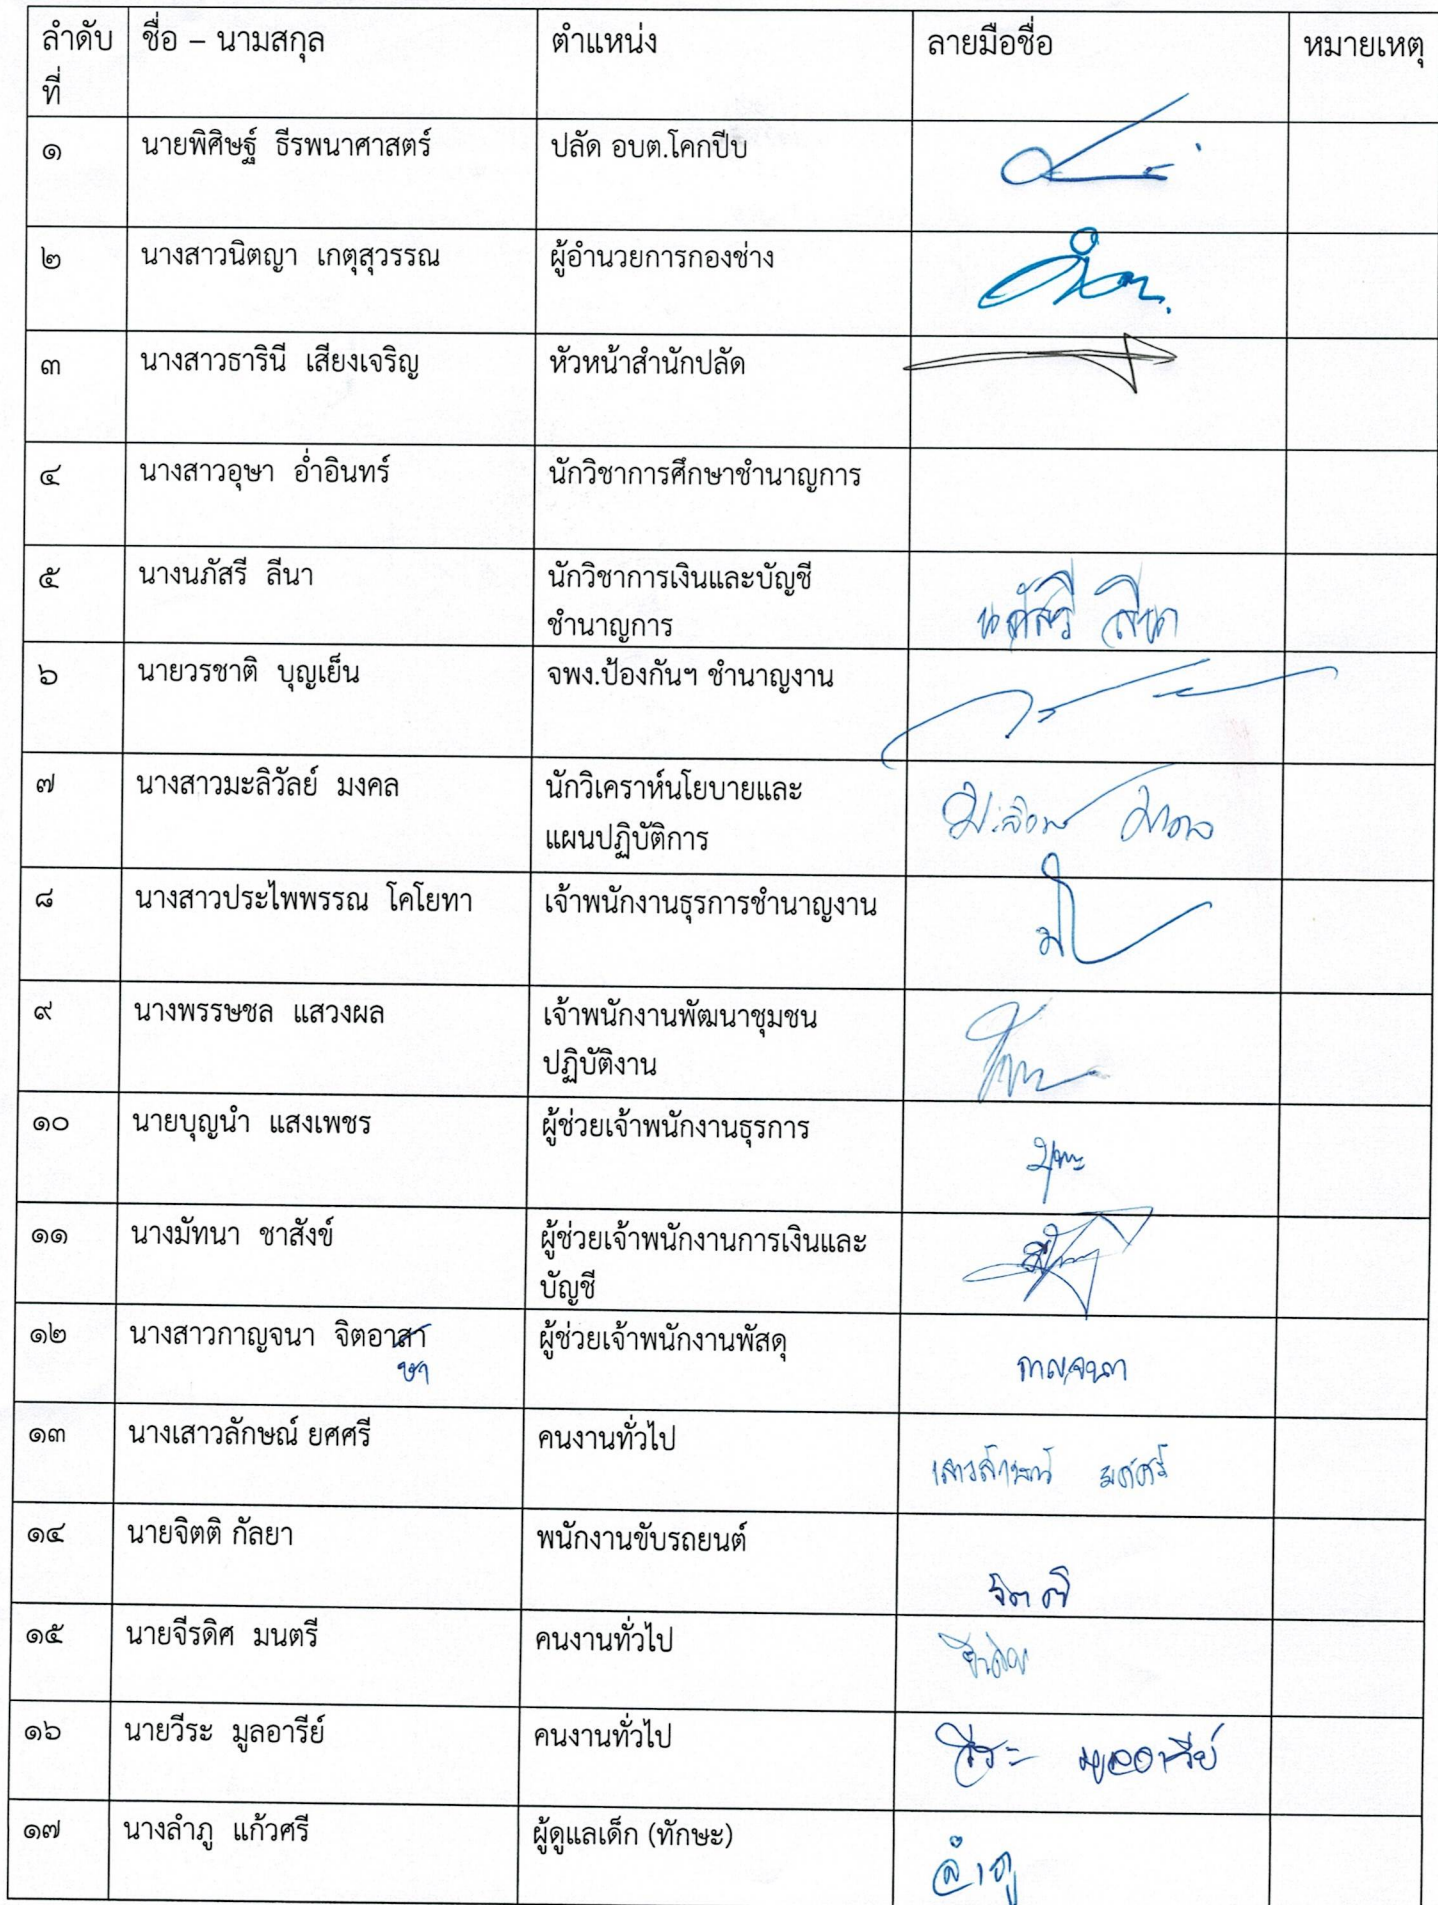 ลำดับ ชื่อ – นามสกุล ตำแหน่ง ลายมือชื่อ หมายเหตุ
ที่
๑ นายพิศิษฐ์ ธีรพนาศาสตร์ ปลัด อบต.โคกปีบ
๒ นางสาวนิตญา เกตุสุวรรณ ผู้อำนวยการกองช่าง
๓ นางสาวธารินี เสียงเจริญ หัวหน้าสำนักปลัด
๔ นางสาวอุษา อ่ำอินทร์ นักวิชาการศึกษาชำนาญการ
๕ นางนภัสรี ลีนา นักวิชาการเงินและบัญชี นภัสรี ลีนา
ชำนาญการ
๖ นายวรชาติ บุญเย็น จพง.ป้องกันฯ ชำนาญงาน
๗ นางสาวมะลิวัลย์ มงคล นักวิเคราห์นโยบายและ มะลิวัลย์ มงคล
แผนปฏิบัติการ
๘ นางสาวประไพพรรณ โคโยทา เจ้าพนักงานธุรการชำนาญงาน
๙ นางพรรษชล แสวงผล เจ้าพนักงานพัฒนาชุมชน
ปฏิบัติงาน
๑๐ นายบุญนำ แสงเพชร ผู้ช่วยเจ้าพนักงานธุรการ
๑๑ นางมัทนา ชาสังข์ ผู้ช่วยเจ้าพนักงานการเงินและ
บัญชี
๑๒ นางสาวกาญจนา จิตอาสา ผู้ช่วยเจ้าพนักงานพัสดุ กาญจนา
ษา
๑๓ นางเสาวลักษณ์ ยศศรี คนงานทั่วไป เสาวลักษณ์ ยศศรี
๑๔ นายจิตติ กัลยา พนักงานขับรถยนต์ จิตติ
๑๕ นายจีรดิศ มนตรี คนงานทั่วไป
๑๖ นายวีระ มูลอารีย์ คนงานทั่วไป วีระ มูลอารีย์
๑๗ นางลำภู แก้วศรี ผู้ดูแลเด็ก (ทักษะ) ลำภู